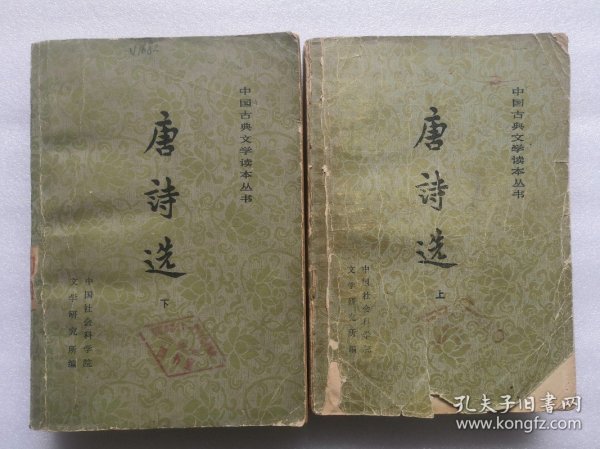 V1684
中国古典文学读本丛书
唐詩选
下
中国社会科学院
文学研究所编
中国古典文学读本丛书
唐詩选
上
中国社会科学院
文学研究所编
孔夫子旧书网
www.kongfz.com